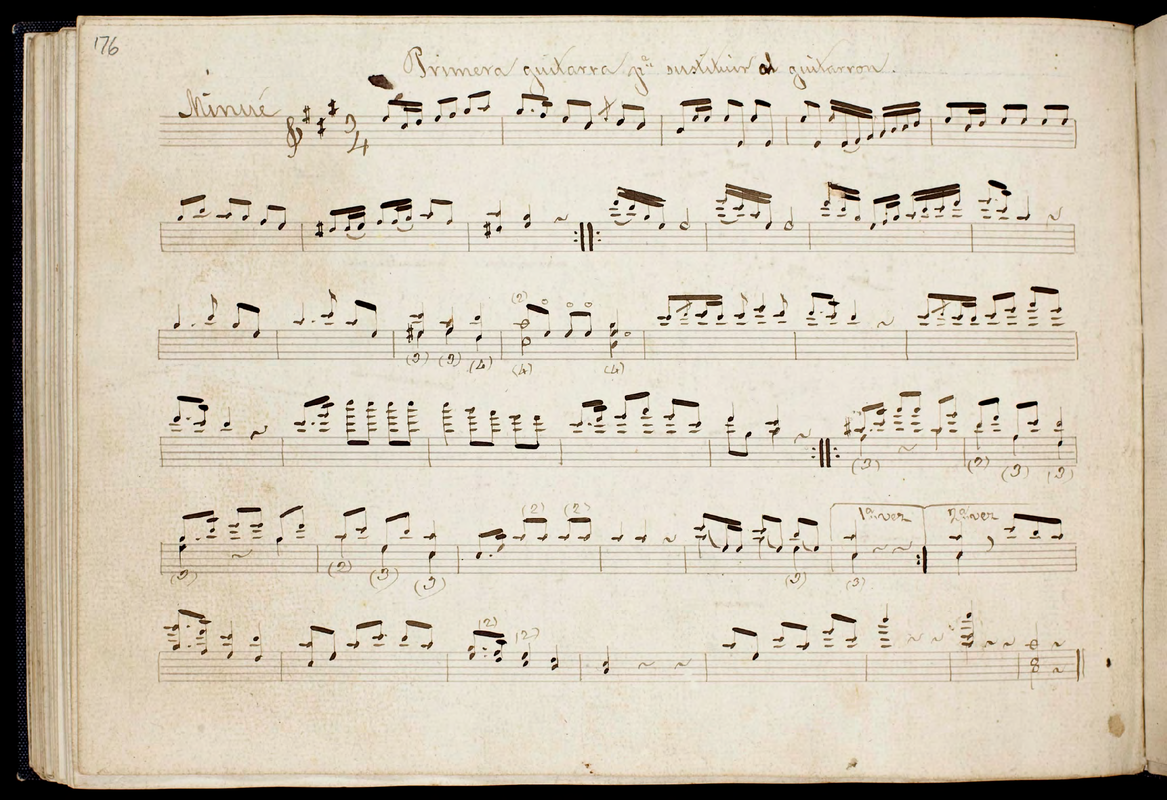 176
Primera guitarra pa sustituir al guitarron.
Minué 3/4
(2)
(3) (3) (4) (4) (4)
(3) (2) (3) (3)
(2) (2) 1a vez 2a vez
(3) (2) (3) (3) (3) (3)
(2) (2)